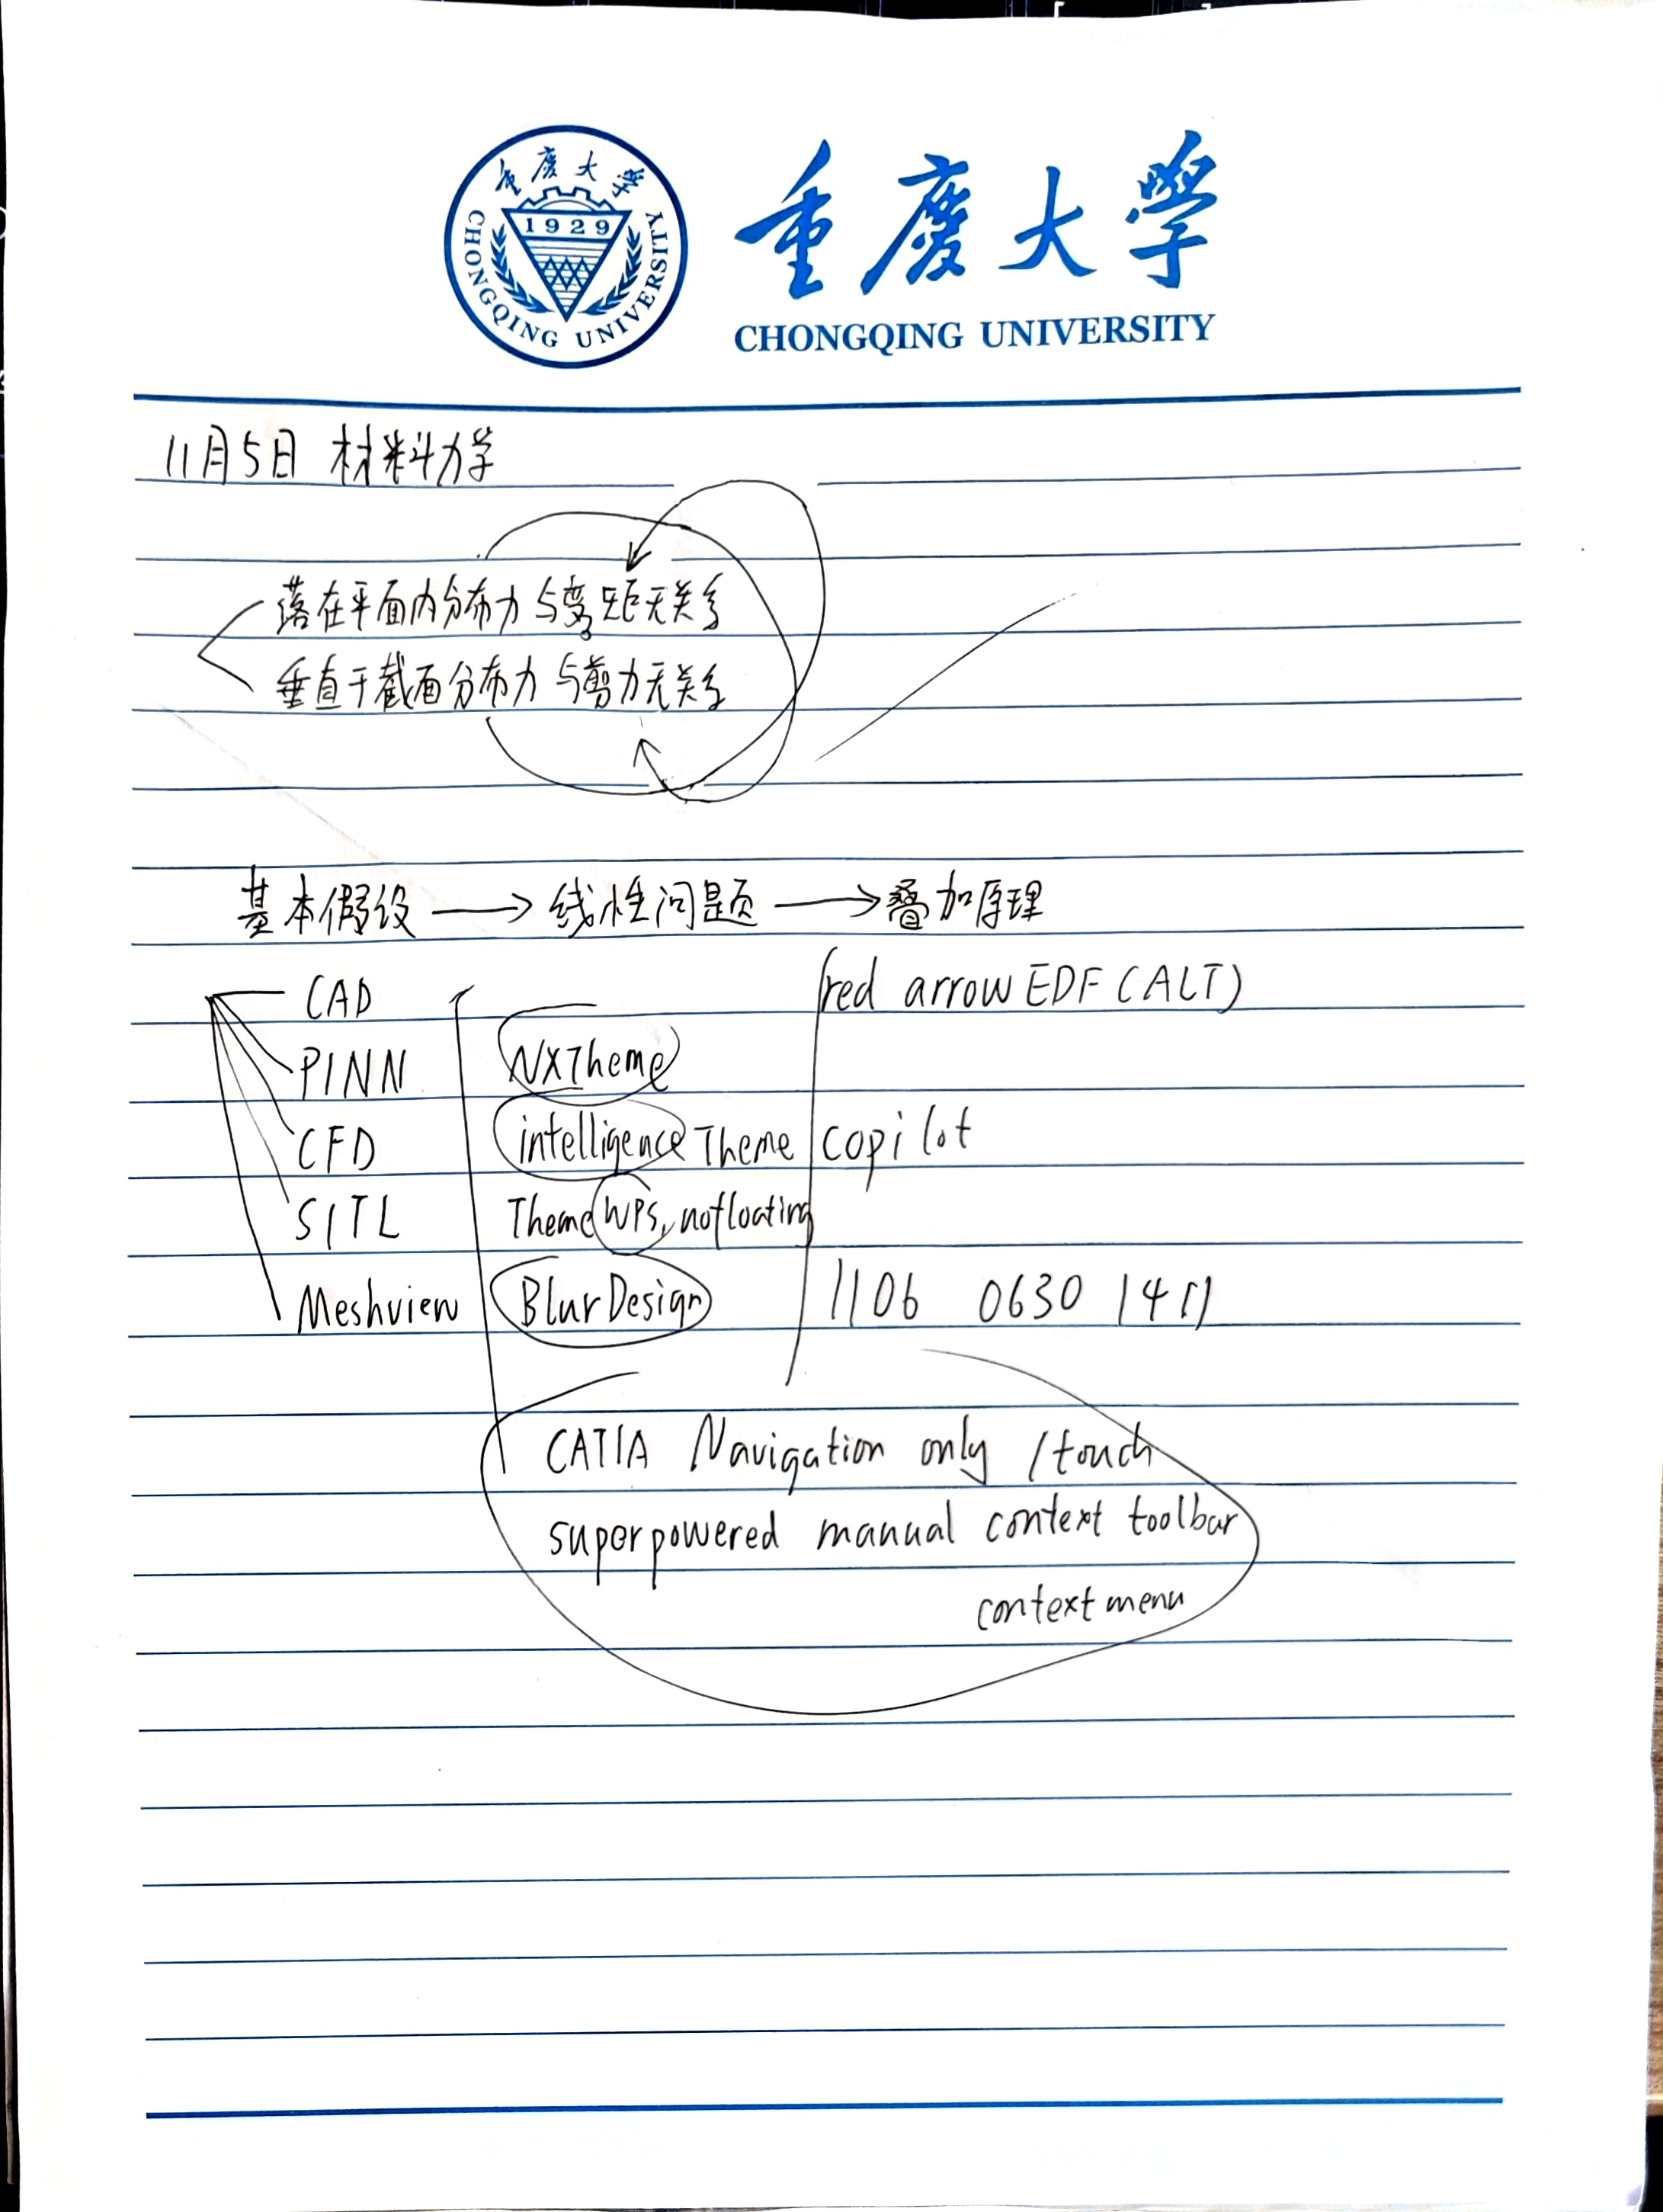 重慶大學
1929
CHONGQING UNIVERSITY
重慶大學
CHONGQING UNIVERSITY
11月5日 材料力学
落在平面内分布力与弯矩无关系
垂直于截面分布力与剪力无关系
基本假设 → 线性问题 → 叠加原理
CAD
PINN
CFD
SITL
Meshview
NXTheme
intelligence Theme
Theme WPS, nofloating
Blur Design
red arrow EDF (ALT)
copilot
1106 0630
CATIA Navigation only / touch
superpowered manual context toolbar
context menu